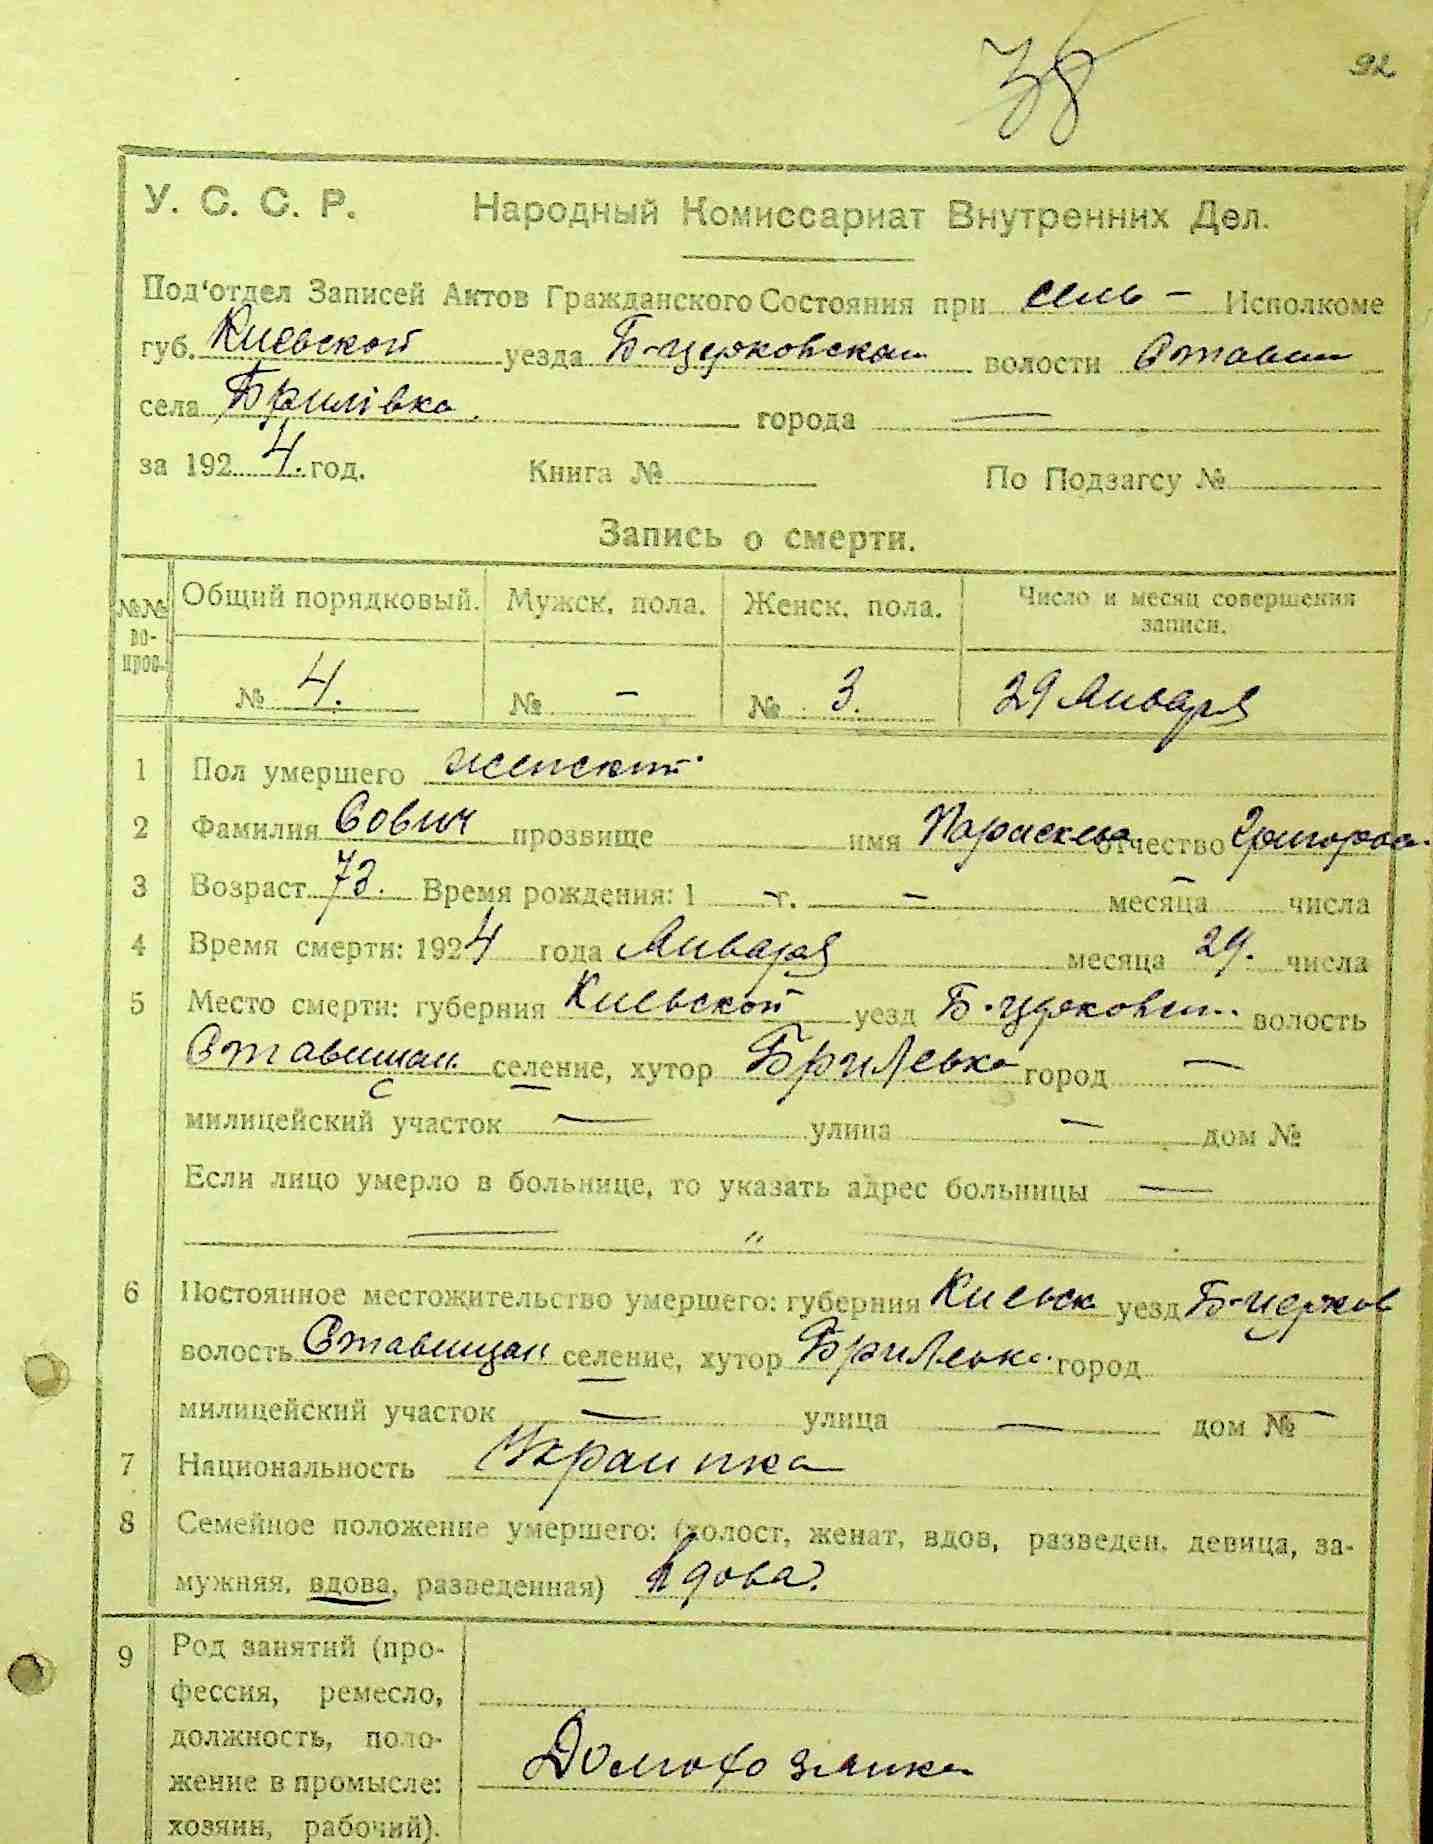 38
92
У. С. С. Р. Народный Комиссариат Внутренних Дел.
Под'отдел Записей Актов Гражданского Состояния при сель - Исполкоме
губ. Киевской уезда Б-церковском волости Ставищ
села Брилівка города —
за 1924. год. Книга № По Подзагсу №
Запись о смерти.
№№ вопрос. Общий порядковый. Мужск. пола. Женск. пола. Число и месяц совершения записи.
№ 4. № - № 3. 29 Января
1 Пол умершего женский
2 Фамилия Сович прозвище имя Параскева отчество Григоров.
3 Возраст 73. Время рождения: 1 - г. - месяца - числа
4 Время смерти: 1924 года Января месяца 29. числа
5 Место смерти: губерния Киевской уезд Б.церковск. волость
Ставищан. селение, хутор Брилевка город —
милицейский участок — улица — дом №
Если лицо умерло в больнице, то указать адрес больницы —
— " —
6 Постоянное местожительство умершего: губерния Киевск уезд Б-церков
волость Ставищан селение, хутор Брилевка город
милицейский участок — улица — дом № —
7 Национальность Украинка
8 Семейное положение умершего: (холост, женат, вдов, разведен, девица, за-
мужняя, вдова, разведенная) Вдова.
9 Род занятий (про-
фессия, ремесло,
должность, поло-
жение в промысле: Домохозяйка
хозяин, рабочий).